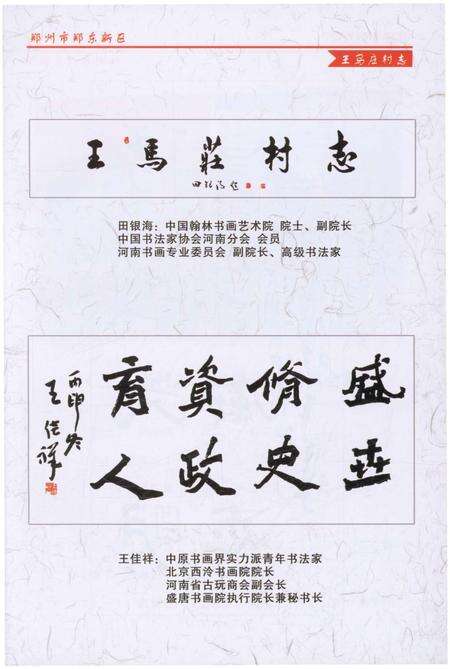 郑州市郑东新区
王马庄村志
王馬莊村志
田银海：中国翰林书画艺术院 院士、副院长
中国书法家协会河南分会 会员
河南书画专业委员会 副院长、高级书法家
盛世
脩史
資政
育人
丙申冬
王佳祥
王佳祥：中原书画界实力派青年书法家
北京西泠书画院院长
河南省古玩商会副会长
盛唐书画院执行院长兼秘书长